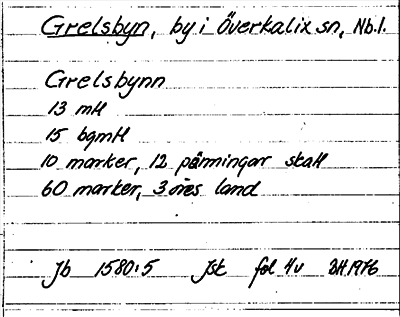 Grelsbyn, by i Överkalix sn, Nb.l.
Grelsbynn
13 mH
15 bgmH
10 marker, 12 pänningar skaH
60 marker, 3 öres land
Jb 1580:5 Jsk fol 4v BH 1976